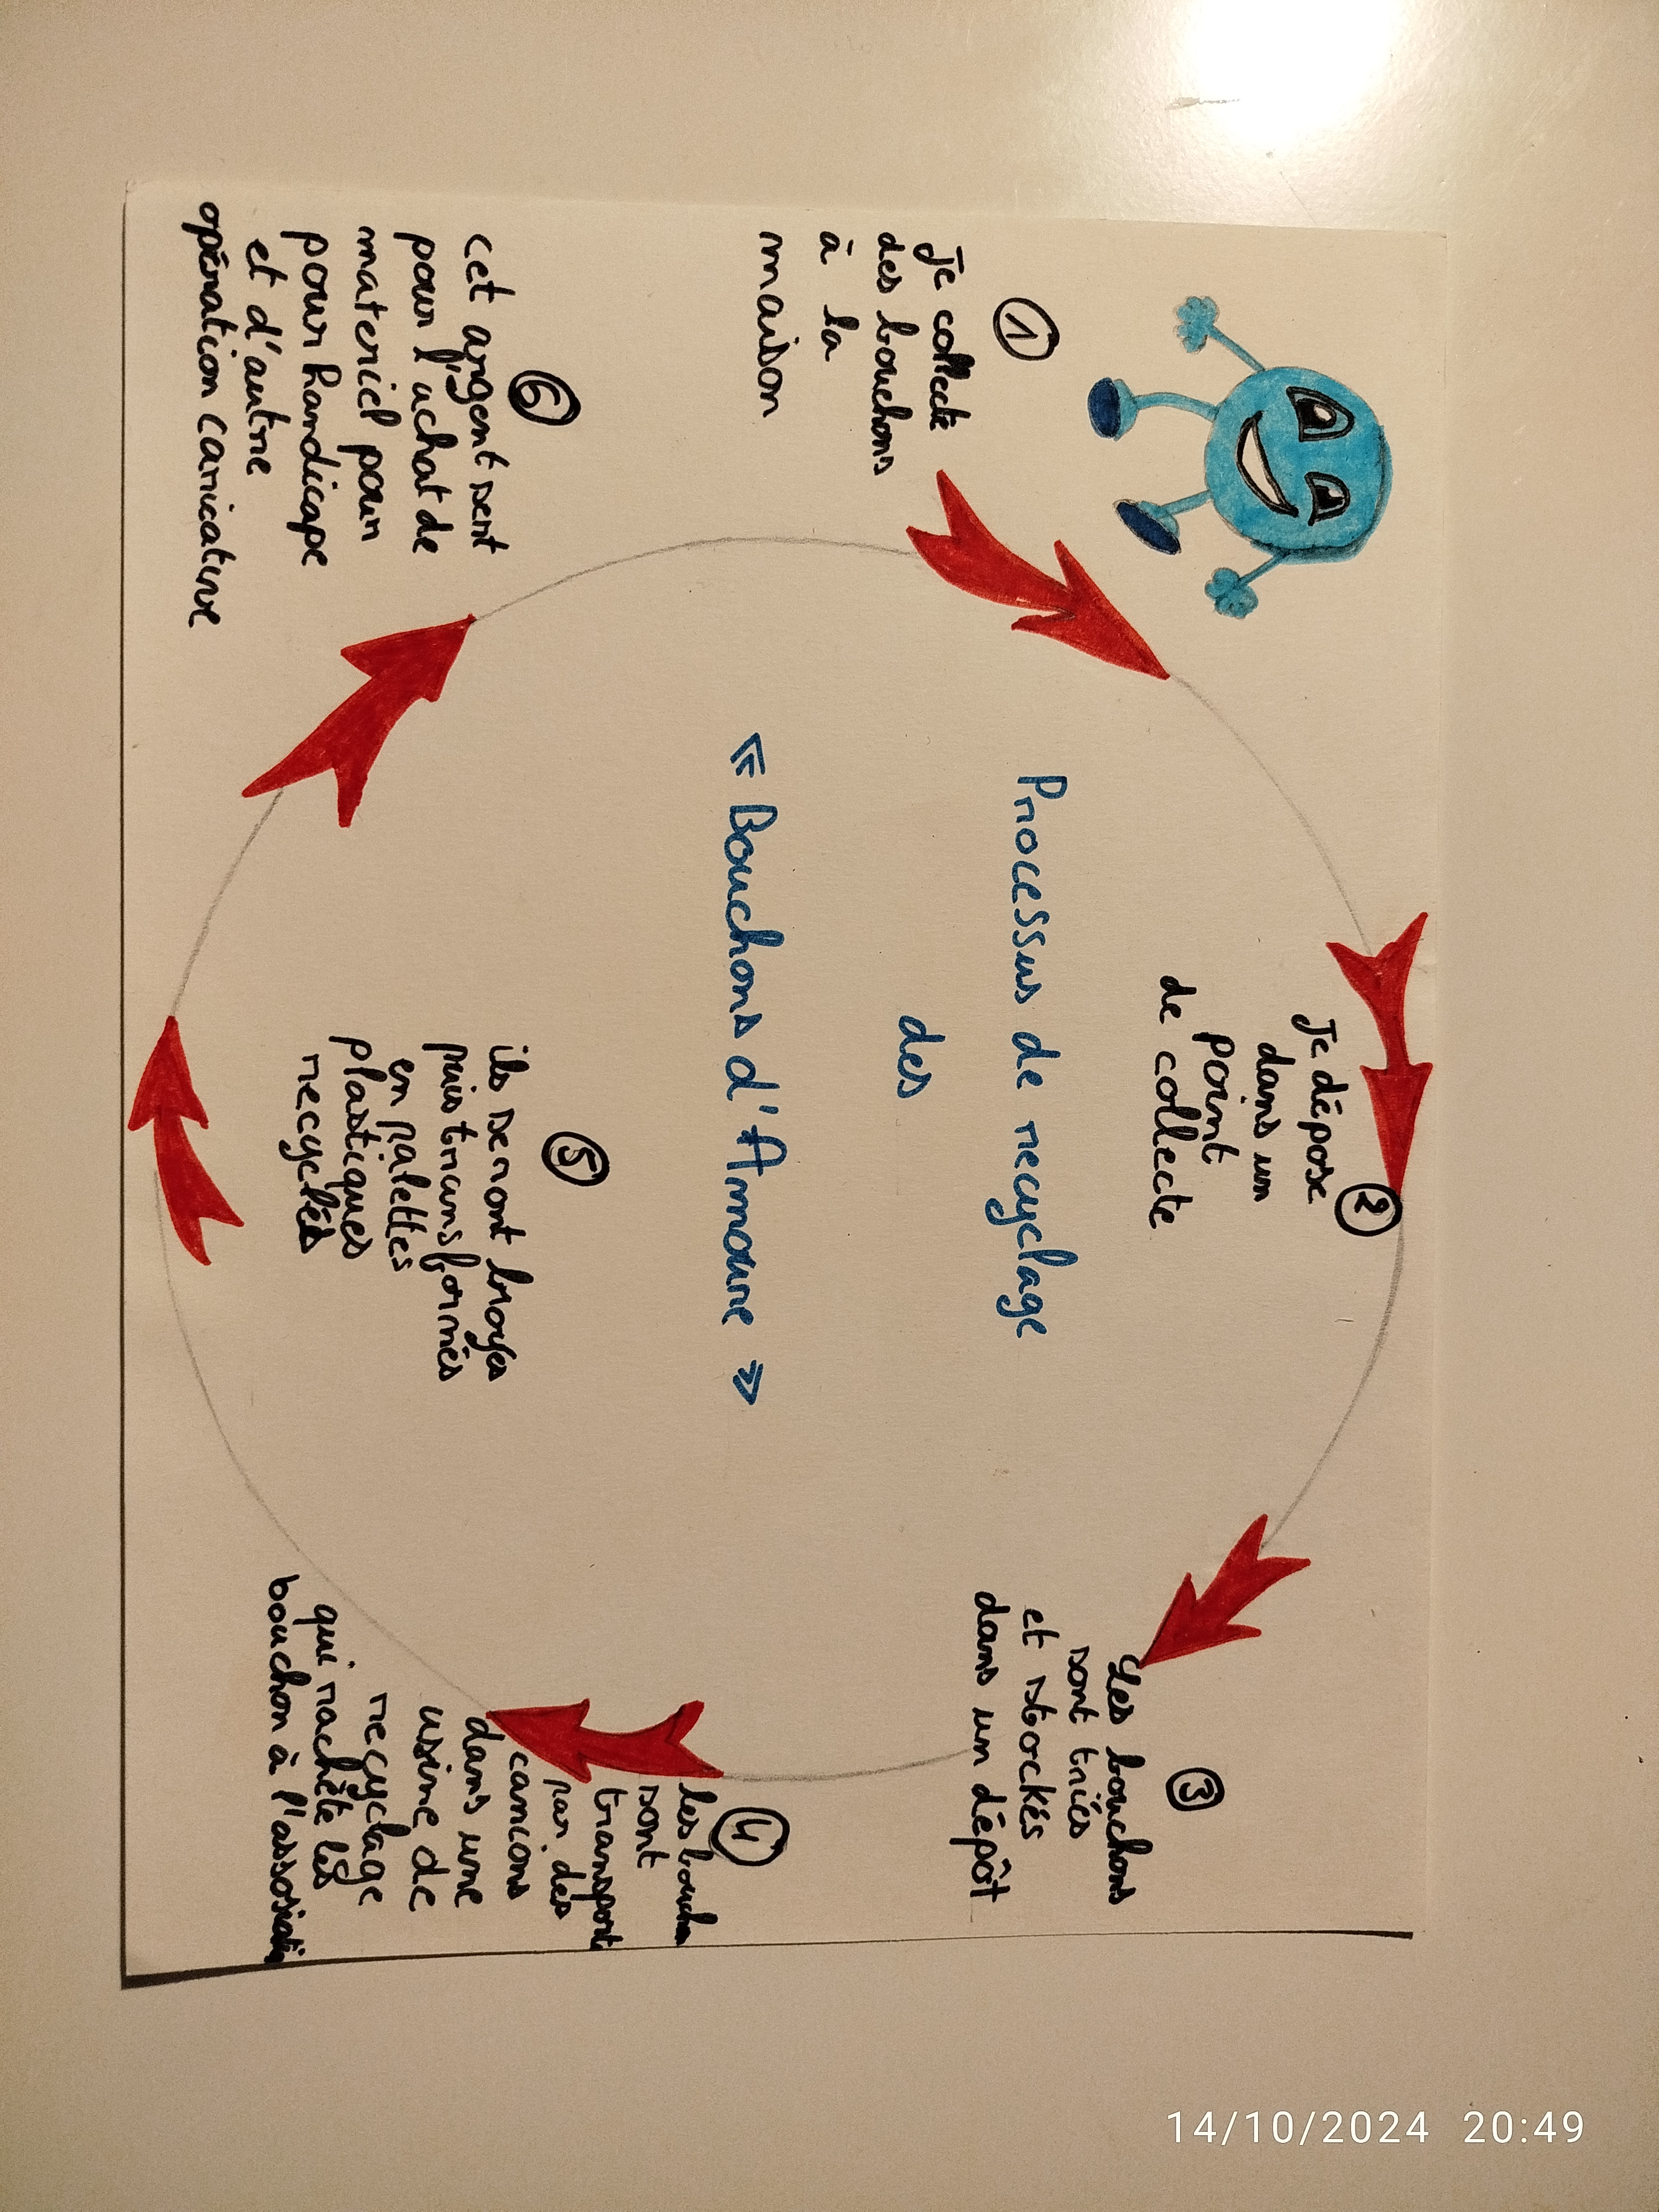 Processus de recyclage
des
« Bouchons d'Amoure »
①
Je collecte
des bouchons
à la
maison
②
Je dépose
dans un
point
de collecte
③
Les bouchons
sont triés
et stockés
dans un dépôt
④
les bouchon
sont
transporté
par des
camions
dans une
usine de
recyclage
qui rachète les
bouchon à l'assosiation
⑤
ils seront broyés
puis transformés
en palettes
plastiques
recyclés
⑥
cet argent sert
pour l'achat de
materiel pour
pour handicape
et d'autre
opération caricative
14/10/2024 20:49